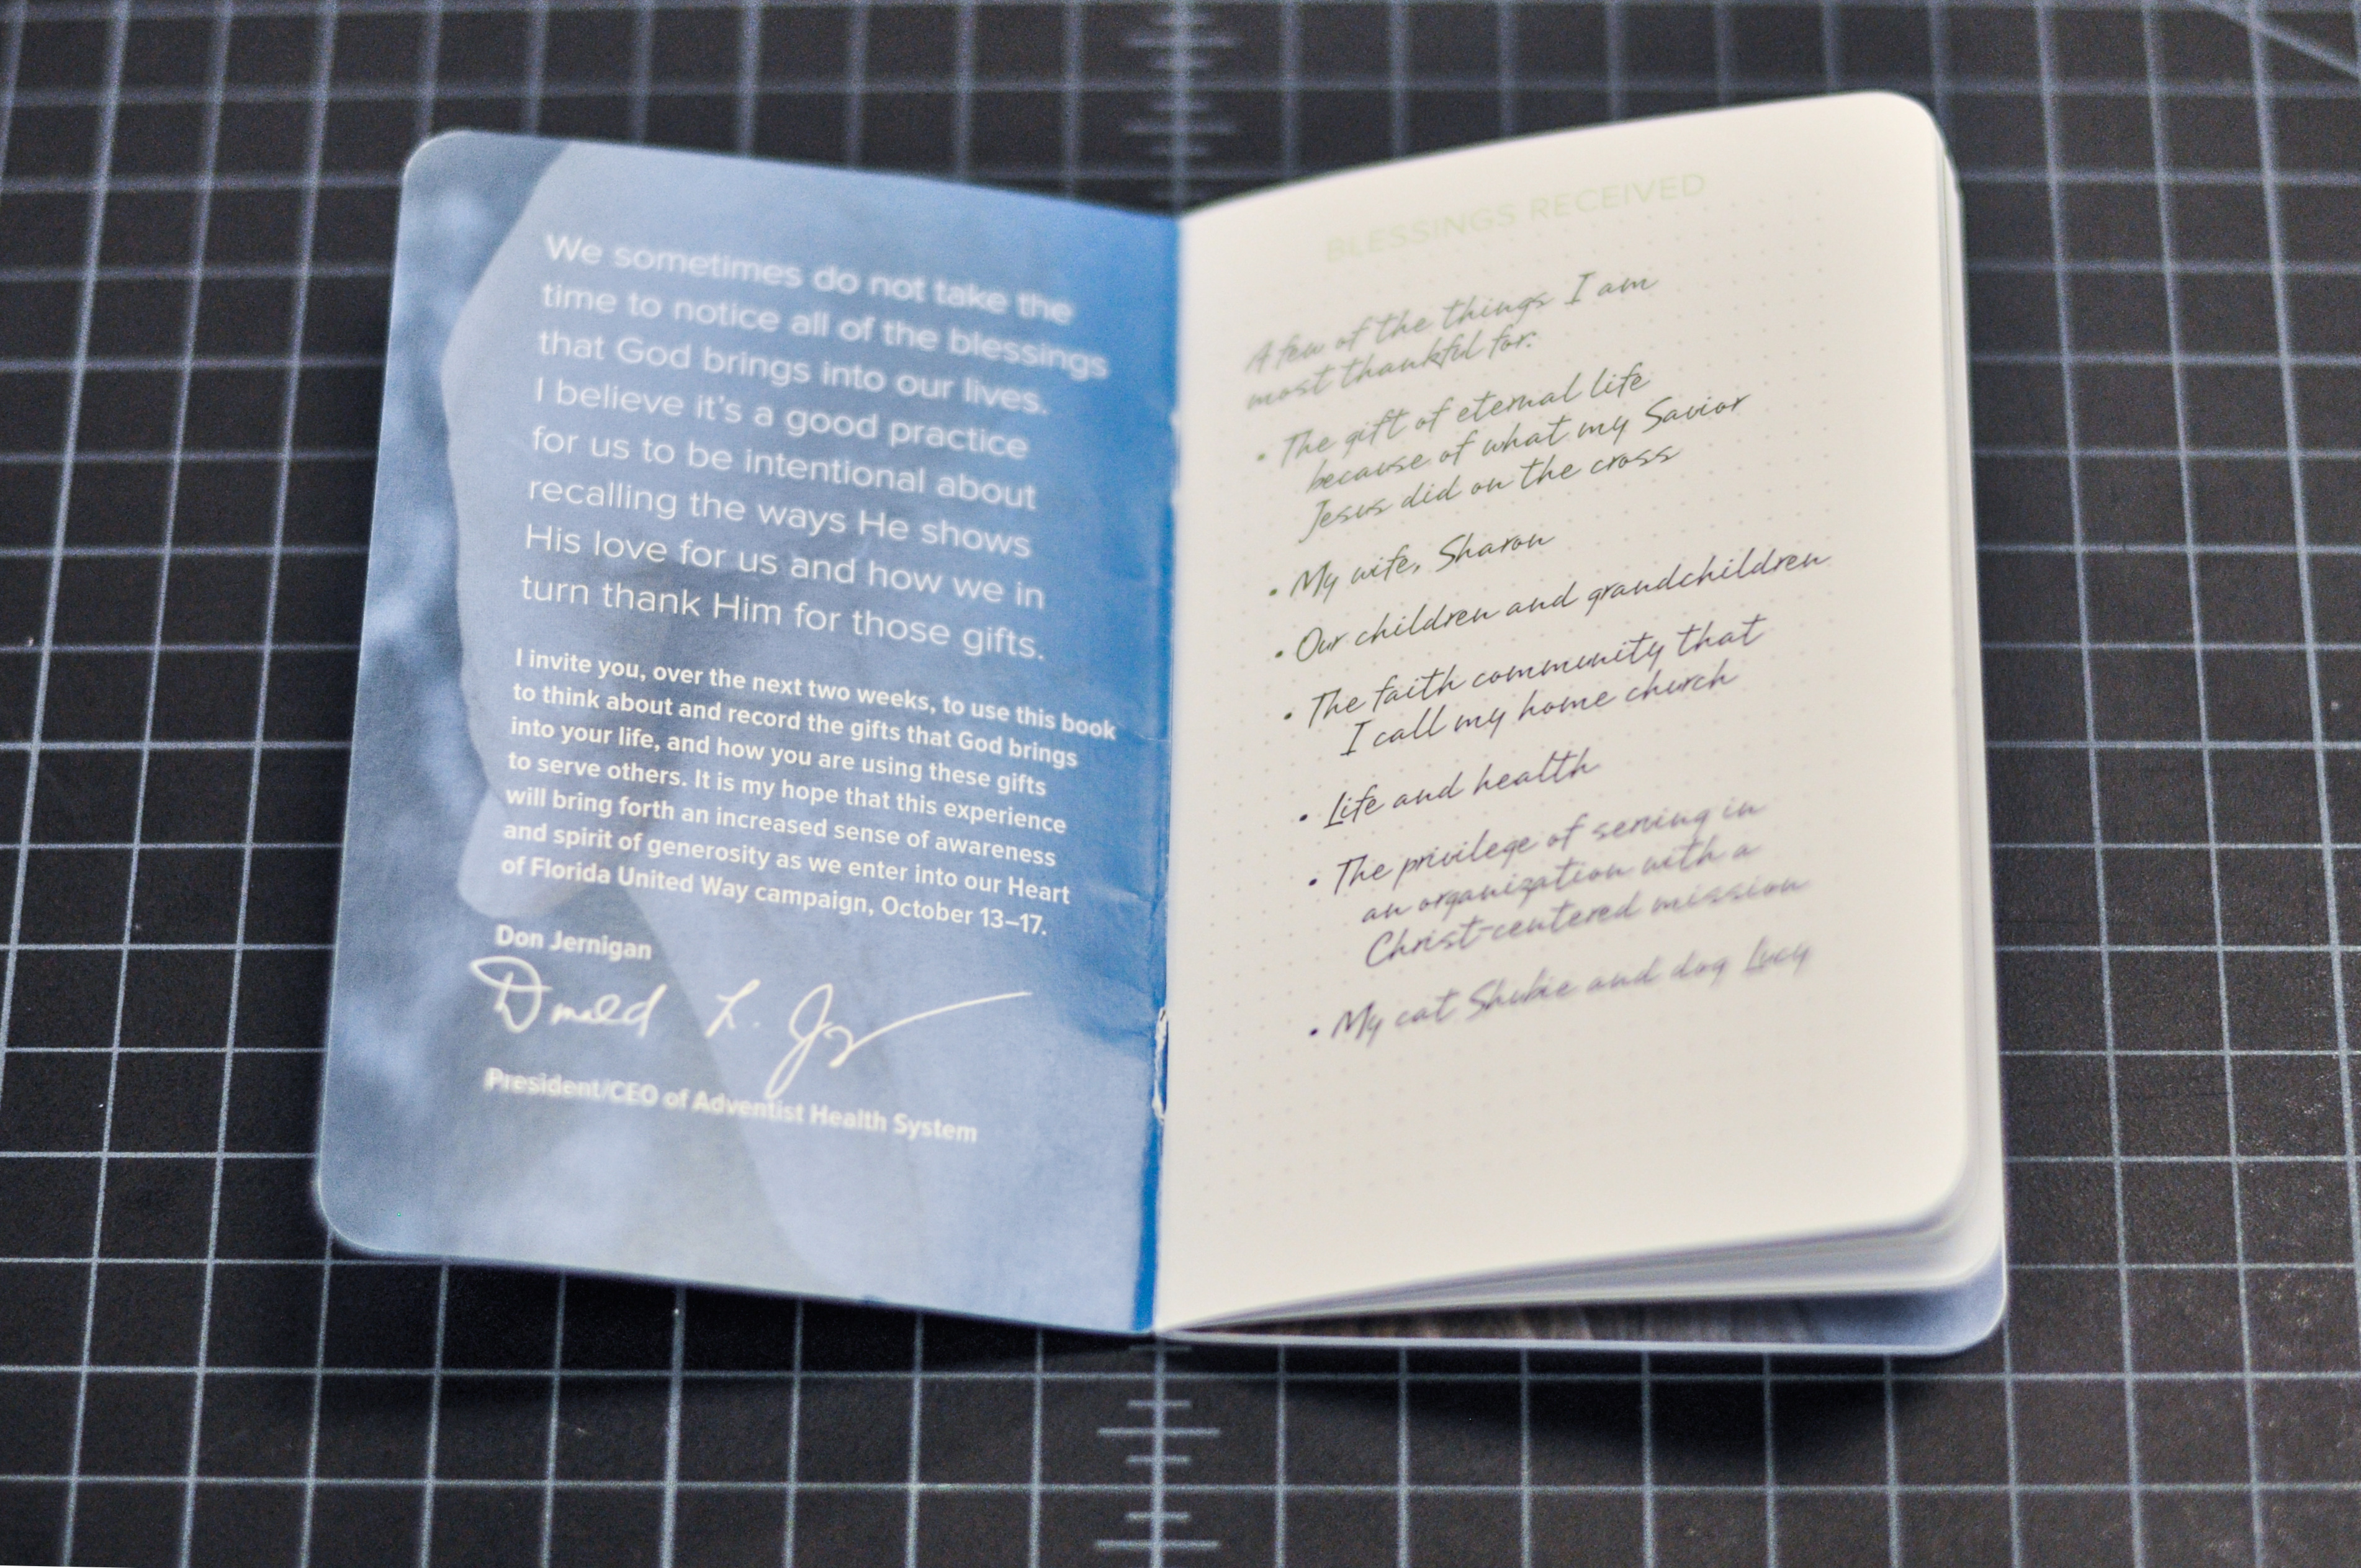 We sometimes do not take the
time to notice all of the blessings
that God brings into our lives.
I believe it's a good practice
for us to be intentional about
recalling the ways He shows
His love for us and how we in
turn thank Him for those gifts.
I invite you, over the next two weeks, to use this book
to think about and record the gifts that God brings
into your life, and how you are using these gifts
to serve others. It is my hope that this experience
will bring forth an increased sense of awareness
and spirit of generosity as we enter into our Heart
of Florida United Way campaign, October 13–17.
Don Jernigan
Donald L.
President/CEO of Adventist Health System
BLESSINGS RECEIVED
A few of the things I am
most thankful for:
• The gift of eternal life
because of what my Savior
Jesus did on the cross
• My wife, Sharon
• Our children and grandchildren
• The faith community that
I call my home church
• Life and health
• The privilege of serving in
an organization with a
Christ-centered mission
• My cat Shubie and dog Lucy